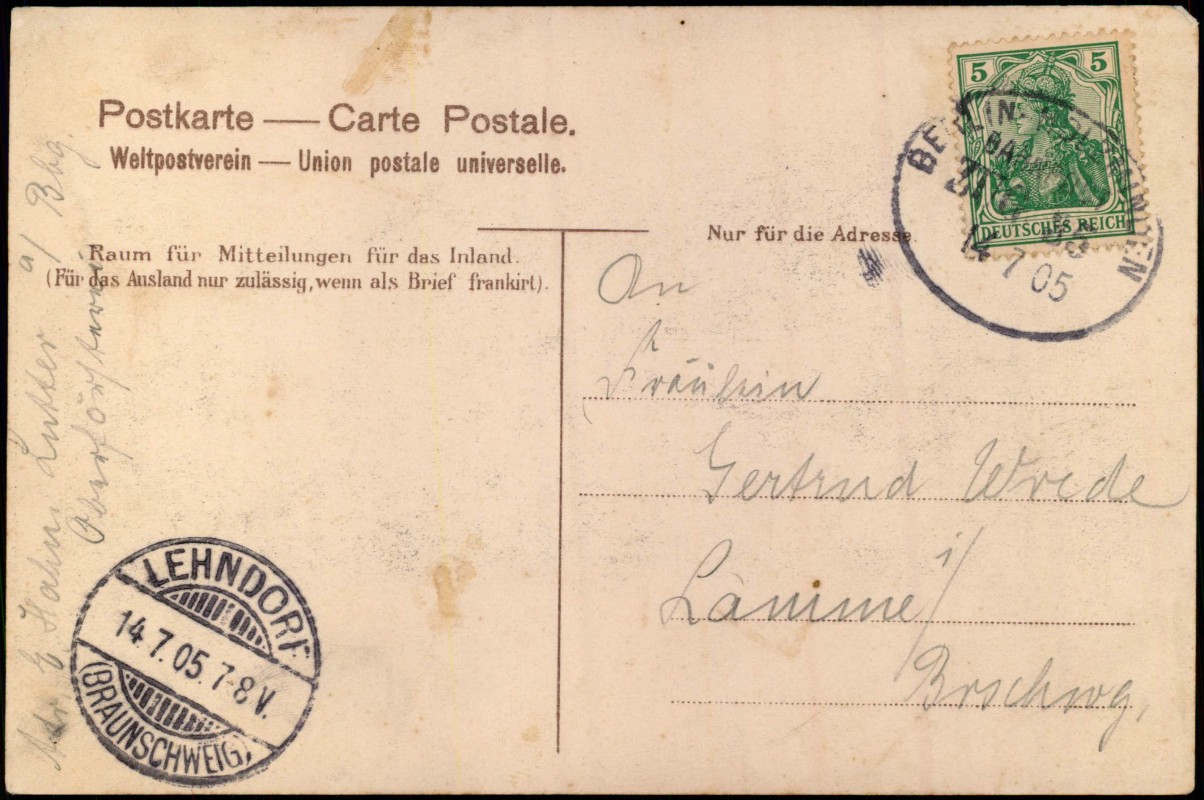 Postkarte — Carte Postale.
Weltpostverein — Union postale universelle.
Raum für Mitteilungen für das Inland.
(Für das Ausland nur zulässig, wenn als Brief frankirt).
Nur für die Adresse
5 5
DEUTSCHES REICH
BERLIN
BAHN
ZUG
14 7 05
An
Fräulein
Gertrud Wrede
Lamme i/
Brschwg,
E. Hahn, Lutter a/ Bbg.
Oberförsterei
LEHNDORF
14.7.05.7-8V.
(BRAUNSCHWEIG)